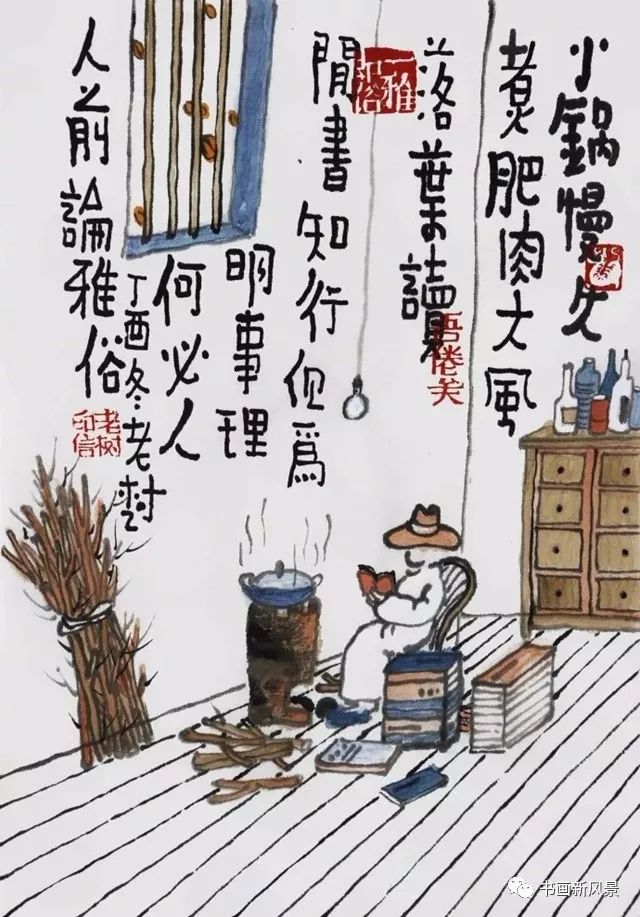 小鍋慢火
煮肥肉大風
落葉讀
閒書知行但爲
明事理
何必人
人之前論雅俗
丁酉冬老树
老树印信
书画新风景